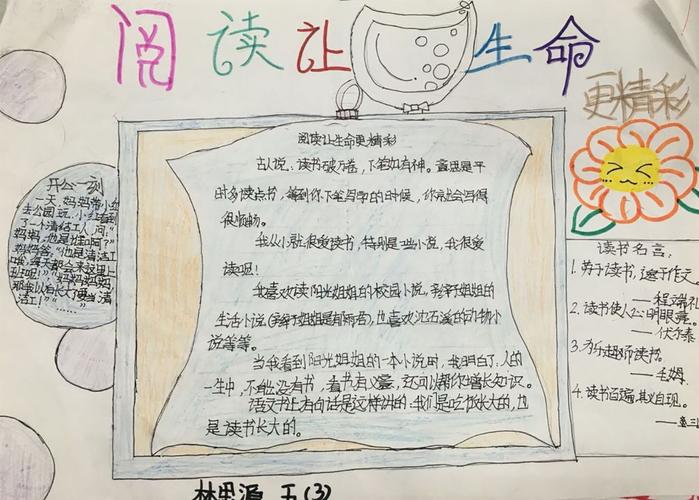 阅读让生命
更精彩
阅读让生命更精彩
古人说：读书破万卷，下笔如有神。意思是平
时多读点书，等到你下笔写字的时候，你就会写得
很顺畅。
我从小就很爱读书，特别是一些小说，我很爱
读呢！
我喜欢读阳光姐姐的校园小说，
生活小说，也喜欢沈石溪的动物小
说等等。
当我看到阳光姐姐的一本小说时，我明白了：人的
一生中，不能没有书，看书有义童，还可以帮你增长知识。
语文书上有句话是这样讲的：我们是吃饭长大的，也
是读书长大的。
开心一刻
一天，妈妈带小红
去公园玩，小红看到
了一个清洁工人，问：“
妈妈，他是谁呵？”
妈妈答：“他是清洁工
每天都会来这里上
班呢！”
那我以后长大了要当清
洁工！”……
读书名言：
1.劳于读书，逸于作文
——程端礼
2.读书使人心明眼亮。
——伏尔泰
3.
4.读书百遍，其义自现。
林思源 五(3)